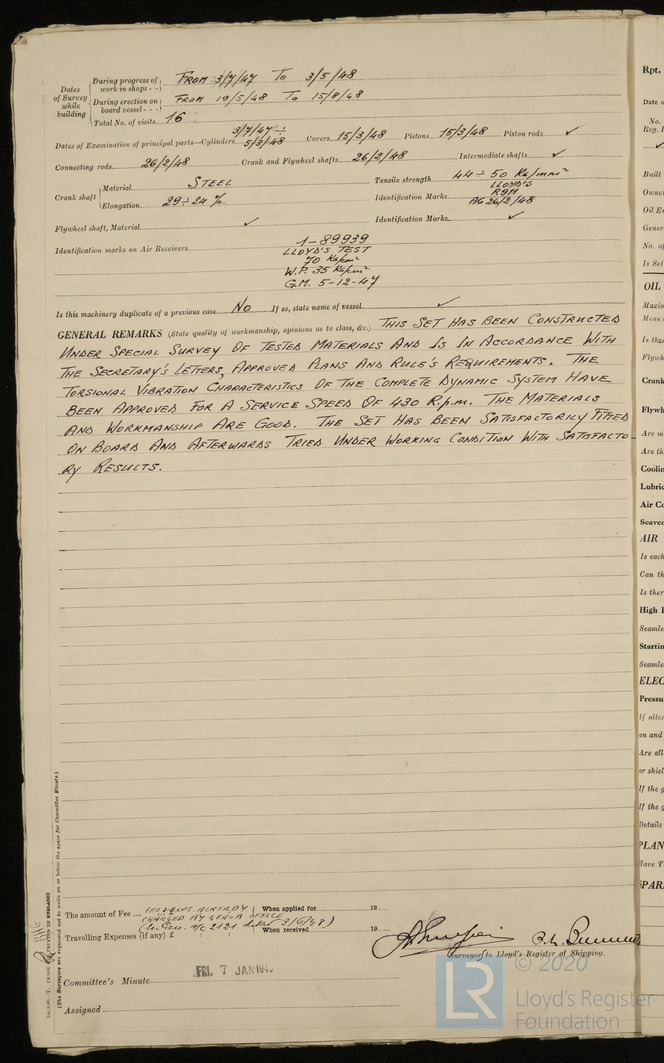 Dates of Survey while building
During progress of work in shops - - FROM 3/7/47 To 3/5/48
During erection on board vessel - - - FROM 19/5/48 To 15/8/48
Total No. of visits 16
Dates of Examination of principal parts—Cylinders 3/7/47 ÷ 5/3/48 Covers 15/3/48 Pistons 15/3/48 Piston rods ✓
Connecting rods 26/2/48 Crank and Flywheel shafts 26/2/48 Intermediate shafts ✓
Crank shaft Material STEEL Tensile strength 44 ÷ 50 Kg/mm²
Elongation 29÷24 % Identification Marks LLOYD'S
AG 26/2/48
Flywheel shaft, Material ✓ Identification Marks ✓
Identification marks on Air Receivers 1-89939
LLOYD'S TEST
70 Kg/cm²
W.P. 35 Kg/cm²
G.M. 5-12-47
Is this machinery duplicate of a previous case No If so, state name of vessel ✓
GENERAL REMARKS (State quality of workmanship, opinions as to class, &c.) THIS SET HAS BEEN CONSTRUCTED
UNDER SPECIAL SURVEY OF TESTED MATERIALS AND IS IN ACCORDANCE WITH
THE SECRETARY'S LETTERS, APPROVED PLANS AND RULE'S REQUIREMENTS. THE
TORSIONAL VIBRATION CHARACTERISTICS OF THE COMPLETE DYNAMIC SYSTEM HAVE
BEEN APPROVED FOR A SERVICE SPEED OF 430 R.p.m. THE MATERIALS
AND WORKMANSHIP ARE GOOD. THE SET HAS BEEN SATISFACTORILY FITTED
ON BOARD AND AFTERWARDS TRIED UNDER WORKING CONDITION WITH SATISFACTO-
RY RESULTS.
(The Surveyors are requested not to write on or below the space for Committee Minute.)
The amount of Fee ... When applied for 19
CHARGED BY GENOA OFFICE
Travelling Expenses (if any) £ When received 19
Surveyors to Lloyd's Register of Shipping.
Committee's Minute FRI. 7 JAN 1949
Assigned
© 2020
LR
Lloyd's Register
Foundation
Rpt.
Date o
No.
Reg.
Built
Owne
Oil E
Gener
No. of
Is Set
OIL
Maxim
Mean
Flywh
Crank
Flywh
Are m
Are th
Coolin
Lubric
Air Co
Scaven
AIR
Is each
Can th
Is ther
High
Seamle
Startin
Seamle
ELEC
Pressu
If alter
on and
Are all
or shiel
If the g
If the g
Details
PLAN
Have T
SPAR